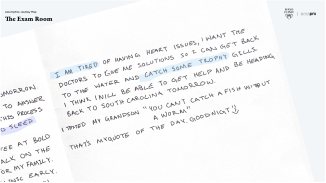 The Exam Room
MORROW
TO ANSWER
THIS PROCESS
D SLEEP.
EE AT BOLD
ALK ON THE
OR MY FAMILY.
INIC EARLY.
I AM TIRED OF HAVING HEART ISSUES, I WANT THE
DOCTORS TO GIVE ME SOLUTIONS SO I CAN GET BACK
TO THE WATER AND CATCH SOME TROPHY GILLS.
I THINK I WILL BE ABLE TO GET HELP AND BE HEADING
BACK TO SOUTH CAROLINA TOMORROW.
I TOLD MY GRANDSON "YOU CAN'T CATCH A FISH WITHOUT
A WORM"
THAT'S MY QUOTE OF THE DAY. GOODNIGHT